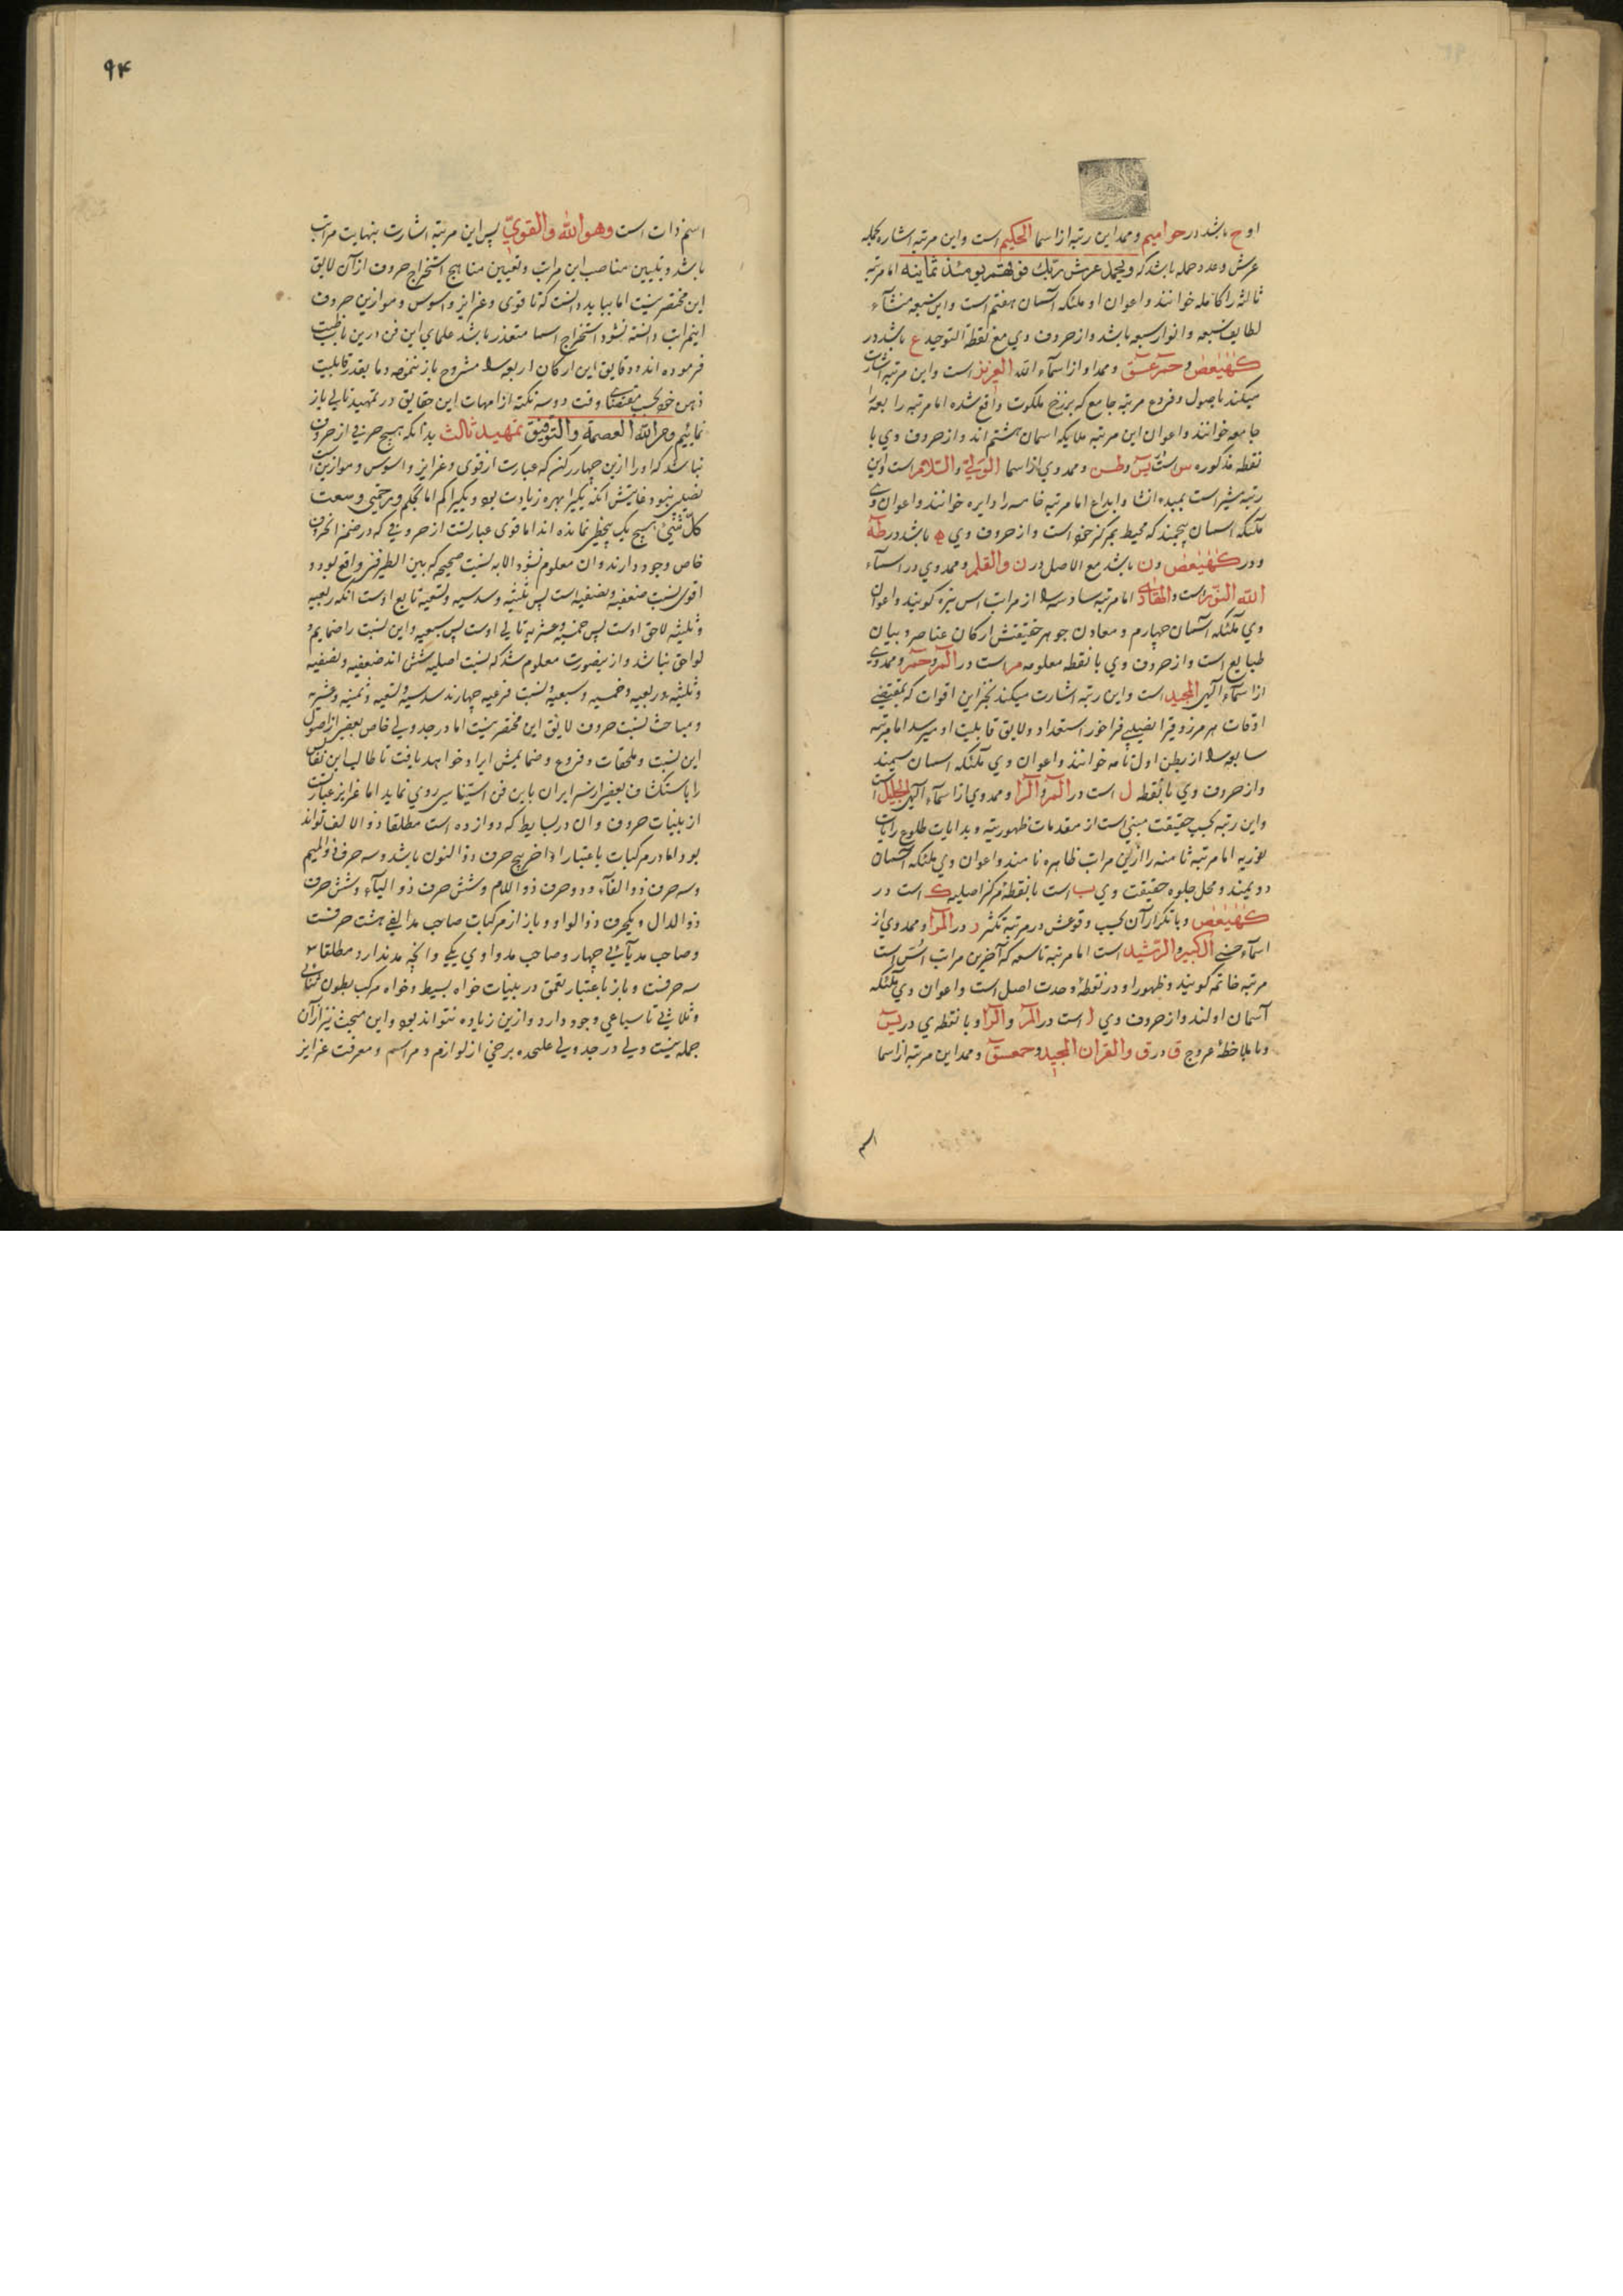 او ح باشد در حوامیم و ممد این رتبه از اسما الحکیم است و این مرتبه اشاره بحمله
عرش و عدد حمله باشد که ویحمل عرش ربک فوقهم یومئذ ثمانیة اما مرتبه
ثالثه را کامله خوانند و اعوان او ملئکه آسمان هفتم است و این سبعه منشآء
لطایف سبعه و انوار سبعه باشد و از حروف وی مع نقطة التوحید ع باشد در
کهیعص و حم عسق و ممد او از اسمآء الله العزیز است و این مرتبه اشارت
میکند باصول و فروع مرتبه جامع که برزخ ملکوت واقع شده اما مرتبه رابعه را
جامعه خوانند و اعوان این مرتبه ملایکه اسمان هشتم اند و از حروف وی با
نقطه مذکوره س است یس و طس و ممد وی از اسما الولی والسلام است و این
رتبه مشیر است بمبدء انشا و ابداع اما مرتبه خامسه را دایره خوانند و اعوان وی
ملئکه اسمان پنجمند که محیط بمرکز خود است و از حروف وی ه باشد در طه
و در کهیعص و ن باشد مع الاصل در ن والقلم و ممد وی در اسمآء
الله النور است والهادی اما مرتبه سادسه را از مراتب اس نیره گویند و اعوان
وی ملئکه آسمان چهارم و معادن جوهر حقیقتش ارکان عناصر و بیان
طبایع است و از حروف وی با نقطه معلومه م است در المر و حم و ممد وی
از اسمآء الهی المجید است و این رتبه اشارت میکند بخزاین اقوات که بمقتضی
اوقات هر مرزوقی را نصیبی فراخور استعداد و لایق قابلیت او میرسد اما مرتبه
سابعه را از بطن اول تامه خوانند و اعوان وی ملئکه اسمان سیمند
و از حروف وی با نقطه ل است در المر و الرا و ممد وی از اسمآء الهی الجلیل است
و این رتبه بحسب حقیقت مبنی است از مقدمات ظهوریه و بدایات طلوع رایات
نوریه اما مرتبه ثامنه را از این مراتب ظاهره نامند و اعوان وی ملئکه آسمان
دویمند و محل جلوه حقیقت وی ب است با نقطه مرکز اصلیه ک است در
کهیعص و با تکرار آن بحسب وقوعش در مرتبه تکثر ر در المرا و ممد وی از
اسمآء حسنی الکبیر والرشید است اما مرتبه تاسعه که آخرین مراتب اسس است
مرتبه خاتمه گویند و ظهور او در نقطه وحدت اصل است و اعوان وی ملئکه
آسمان اولند و از حروف وی ا است در المر و الرا و با نقطه ی در یس
و با ملاحظه عروج ق در ق والقران المجید و حمعسق و ممد این مرتبه از اسما
اسم
۹۴
اسم ذات است وهو الله والقوی پس این مرتبه اشارت بنهایت مراتب
باشد و تبیین مناصب این مراتب و تعیین مناهج استخراج حروف از آن لایق
این مختصر نیست اما بباید دانست که تا قوی و غرایز و اسوس و موازین حروف
اینمراتب دانسته نشود استخراج اسما متعذر باشد علمای این فن درین باب
فرموده اند و دقایق این ارکان اربعه را مشروح باز ننموده و ما بقدر قابلیت
ذهن خود بحسب مقتضای وقت دو سه نکته از امهات این حقایق در تمهید تالی باز
نمائیم و من الله العصمة والتوفیق تمهید ثالث بدانکه هیچ حرفی از حروف
نباشد که او را ازین چهار رکن که عبارت از قوی و غرایز و اسوس و موازین است
نصیبی نبود غایتش آنکه یکیرا بهره زیادت بود و یکیرا کم اما بحکم ورحمتی وسعت
کل شیء هیچ یک بیحظ نمانده اند اما قوی عبارتست از حروفی که در ضمن آنحرف
خاص وجود دارند و ان معلوم نشود الا به نسبت صحیحه که بین الطرفین واقع بود و
اقوی نسبت ضعفیه و نصفیه است پس ثلثیه و سدسیه و تسعیه تابع اوست آنکه ربعیه
و ثلثیه لاحق اوست پس خمسیه و عشریه تالی اوست پس سبعیه و این نسبت را ضمایم و
لواحق نباشد و ازینصورت معلوم شد که نسبت اصلیه شش اند ضعفیه و نصفیه
و ثلثیه و ربعیه و خمسیه و سبعیه و نسبت فرعیه چهارند سدسیه و تسعیه و ثمنیه و عشریه
و مباحث نسبت حروف لایق این مختصر نیست اما در جدولی خاص بعضی از اصول
این نسبت و ملحقات و فروع و ضمایمش ایراد خواهد یافت تا طالب این نفایس
را باستکشاف بعضی از سرایر آن باین فن استیناسی روی نماید اما غرایز عبارتست
از بینات حروف و ان در بسایط که دوازده است مطلقا ذو الالف تواند
بود اما در مرکبات باعتبار اواخر پنج حرف ذو النون باشد و سه حرف ذو المیم
و سه حرف ذو الفآء و دو حرف ذو اللام و شش حرف ذو الیآء و شش حرف
ذو الدال و یکحرف ذو الواو و باز از مرکبات صاحب مد الفی هشت حرفست
و صاحب مد یآئی چهار و صاحب مد واوی یکی و آنچه مد ندارد مطلقا
سه حرفست و باز باعتبار تعمق در بینات خواه بسیط و خواه مرکب بطون ثنائی
و ثلاثی تا سباعی وجود دارد و ازین زیاده نتواند بود و این مبحث نیز از آن
جمله نیست ولی در جدولی علیحده برخی از لوازم و مراسم و معرفت غرایز